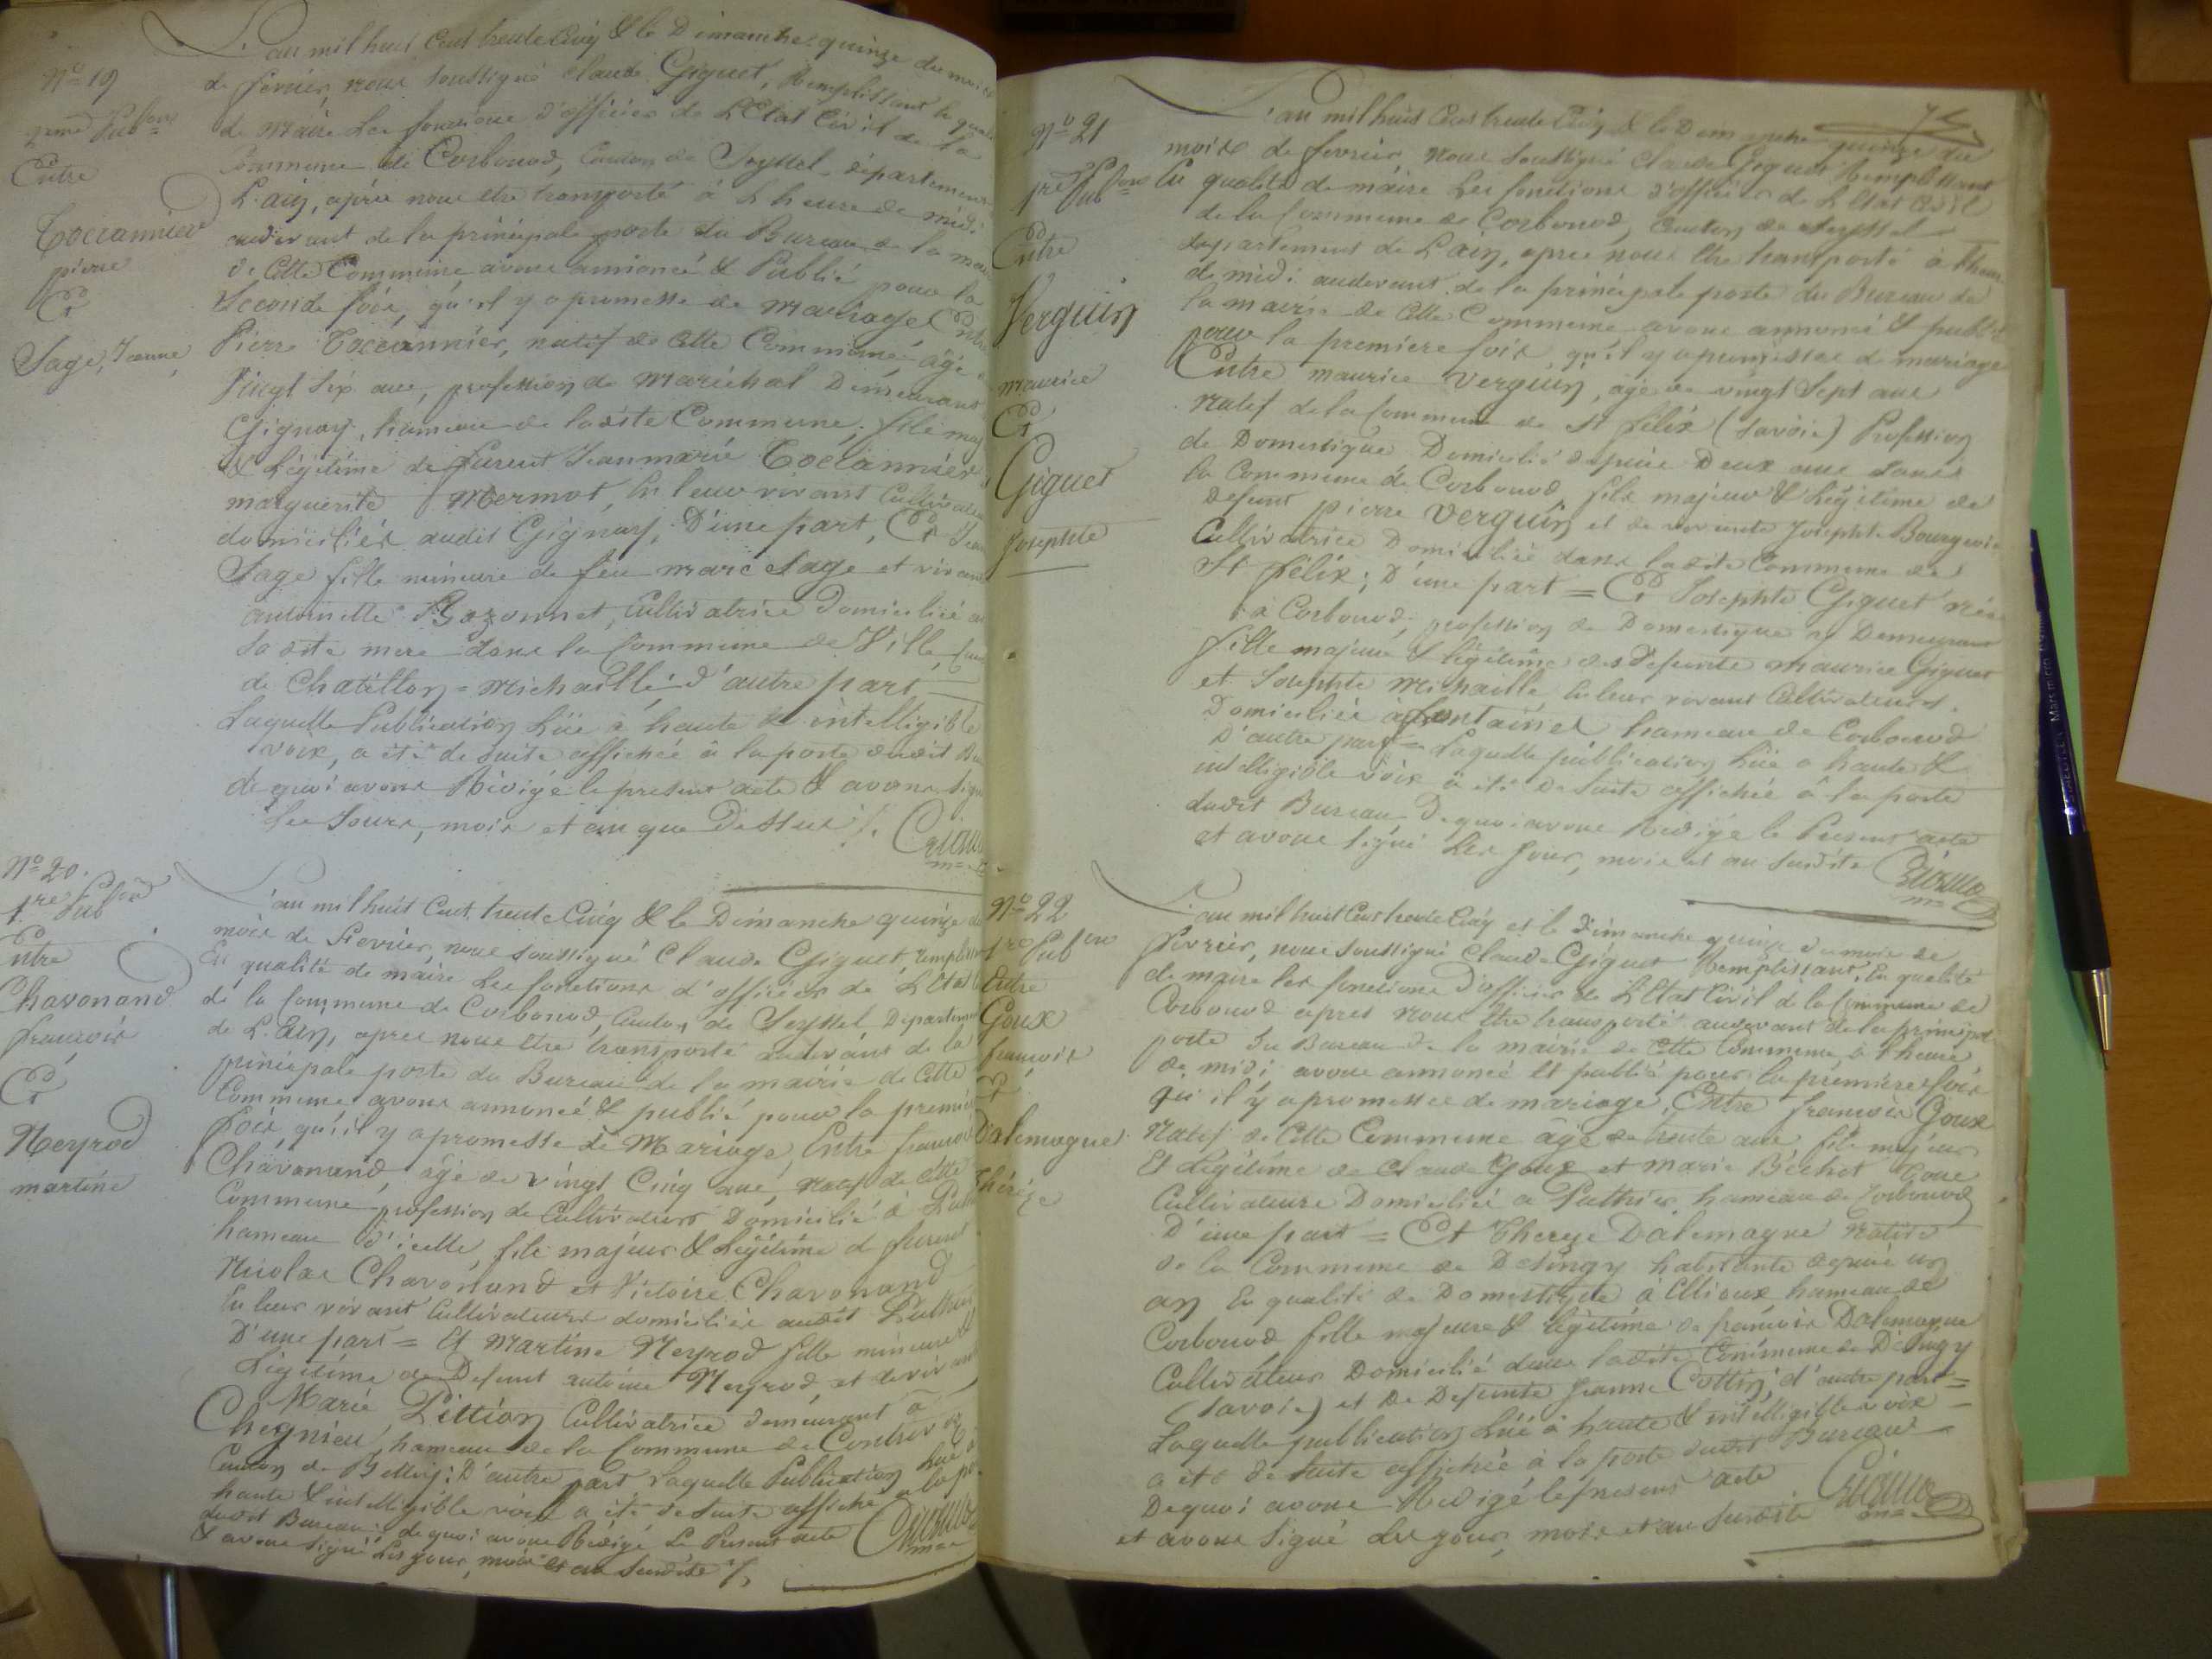 N° 19
2eme Pub.ion
Entre
Toccannier
pierre
Et
Sage, Jeanne
L'an mil huit Cent trente Cinq & le Dimanche quinze du mois
de fevrier, nous soussigné Claude Giguet, Remplissant la qualité
de Maire Les fonctions d'officier de L'Etat Civil de la
Commune de Corbonod, Canton de Seyssel, département
L'ain, après nous etre transporté à L'heure de midi
audevant de la principale porte du Bureau de la
de Cette Commune avons annoncé & Publié pour la
Seconde fois, qu'il y a promesse de Mariage Entre
Pierre Toccannier, natif de cette Commune, âgé
Vingt Six ans, profession de Maréchal Demeurant
Gignay, hameau de ladite Commune, fils
& Légitime de furent Jeanmarie Toccannier
marguerite Mermot, En leur vivant Cultivateurs
domiciliés audit Gignay, D'une part, Et
Sage fille mineure de feu Marc Sage et
antoinette Bozonnet, Cultivatrice Domiciliée
sa dite mere dans la Commune de Ville
de Chatillon = Michaille d'autre part
Laquelle Publication Lüe à haute & intelligible
voix, a été de Suite affichée à la porte dudit
de quoi avons Rédigé le present acte & avons
Les Jours, mois et an que Dessus /. Giguet
N° 20.
1re Pub.ion
Entre
Chavonand
francois
Et
Neyrod
martine
L'an mil huit Cent trente Cinq & le Dimanche quinze du
mois de Fevrier, nous soussigné Claude Giguet, remplissant
En qualité de maire Les fonctions d'officier de L'Etat
de la Commune de Corbonod, Canton de Seyssel Departement
de L'Ain, apres nous etre transporté audevant de la
principale porte du Bureau de la mairie de Cette
Commune avons annoncé & publié pour la premiere
fois, qu'il y a promesse de Mariage, Entre francois
Chavonand, âgé de vingt Cinq ans, natif de Cette
Commune profession de Cultivateur Domicilié à
hameau d'icelle, fils majeur & Légitime de furent
Nicolas Chavonand et Victoire Chavonand
En leur vivant Cultivateurs domiciliés audit
D'une part = Et Martine Neyrod fille mineure &
Légitime de Defunt antoine Neyrod, et de
Marie Pittion Cultivatrice demeurant à
Chegnieu, hameau de la Commune de
Canton de Belley; D'autre part Laquelle Publication Lue à
haute & intelligible voix a été de Suite affiché a la
dudit Bureau: de quoi avons Rédigé Le Present acte
& avons Signé Les Jour, mois et an Susdits /. Giguet
74
N° 21
1re Pub.ion
Entre
Verguin
maurice
Et
Giguet
Josephte
L'an mil huit Cent trente Cinq & le Dimanche quinze du
mois de fevrier, nous soussigné Claude Giguet Remplissant
En qualité de maire Les fonctions d'officier de L'Etat Civil
de la Commune de Corbonod, Canton de Seyssel
departement de L'ain, apres nous etre transporté à
de midi audevant de la principale porte du Bureau de
la mairie de Cette Commune avons annoncé & publié
pour la premiere fois qu'il y a promesse de mariage
Entre maurice Verguin, âgé de vingt Sept ans
natif de la Commune de St félix (Savoie) Profession
de Domestique Domicilié depuis Deux ans dans
la Commune de Corbonod, fils majeur & Légitime de
Defunt pierre Verguin et de vivante Josephte Bourgeois
Cultivatrice Domiciliée dans ladite Commune de
St félix; D'une part = Et Josephte Giguet née
à Corbonod, profession de Domestique y Demeurant
fille majeure & légitime des defunts maurice Giguet
et Josephte Michaille, En leur vivant Cultivateurs
Domiciliés à fontaine hameau de Corbonod
D'autre part = Laquelle publication Lüe a haute &
intelligible voix a été de Suite affichée à la porte
dudit Bureau. De quoi avons Rédigé le Present acte
et avons Signé Les Jour, mois et an Susdits Giguet
N° 22
1re Pub.ion
Entre
Goux
francois
Et
Dalemagne
Thérèze
L'an mil huit Cent trente Cinq et le dimanche quinze du mois de
fevrier, nous soussigné Claude Giguet Remplissant, En qualité
de maire les fonctions D'officier de L'Etat Civil de la Commune de
Corbonod apres nous etre transporté audevant de la principale
porte du Bureau de la mairie de Cette Commune, à l'heure
de midi avons annoncé Et publié pour la premiere fois
qu'il y a promesse de mariage, Entre francois Goux
Natif de Cette Commune âgé de trente ans, fils majeur
Et Légitime de Claude Goux et marie Béchet
Cultivateurs Domiciliés a Puthier, hameau de Corbonod
D'une part = Et Thereze Dalemagne native
de la Commune de Desingy habitante depuis un
an En qualité de Domestique à hameau de
Corbonod fille majeure & légitime de francois Dalemagne
Cultivateur Domicilié dans ladite Commune de Désingy
(Savoie) et De Defunte Jeanne Cottin; d'autre part =
Laquelle publication Lüe à haute & intelligible voix
a été de suite affichée à la porte dudit Bureau
De quoi avons Rédigé le present acte
et avons Signé Les Jour, mois et an Susdits Giguet